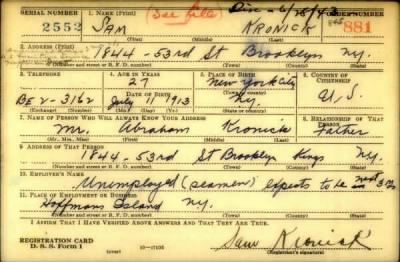 SERIAL NUMBER
1. NAME (Print)
See file
Dis - 6/28/43
ORDER NUMBER
2553
SAM KRONICK
845
881
(First) (Middle) (Last)
2. ADDRESS (Print)
1844 - 53rd St Brooklyn N.Y.
(Number and street or R. F. D. number) (Town) (County) (State)
3. TELEPHONE
4. AGE IN YEARS
5. PLACE OF BIRTH
6. COUNTRY OF CITIZENSHIP
27
New York City
DATE OF BIRTH
BE 2-3162
July 11 1913
N.Y.
U.S.
(Exchange) (Number)
(Mo.) (Day) (Yr.)
(State or country)
7. NAME OF PERSON WHO WILL ALWAYS KNOW YOUR ADDRESS
8. RELATIONSHIP OF THAT PERSON
Mr. Abraham Kronick Father
(Mr., Mrs., Miss) (First) (Middle) (Last)
9. ADDRESS OF THAT PERSON
1844 - 53rd St Brooklyn Kings N.Y.
(Number and street or R. F. D. number) (Town) (County) (State)
10. EMPLOYER'S NAME
Unemployed (seamen) expects to be in next 3
11. PLACE OF EMPLOYMENT OR BUSINESS
Hoffmans Island N.Y.
(Number and street or R. F. D. number) (Town) (County) (State)
I AFFIRM THAT I HAVE VERIFIED ABOVE ANSWERS AND THAT THEY ARE TRUE.
REGISTRATION CARD
D. S. S. Form 1
16-17105
Sam Kronick
(Registrant's signature)